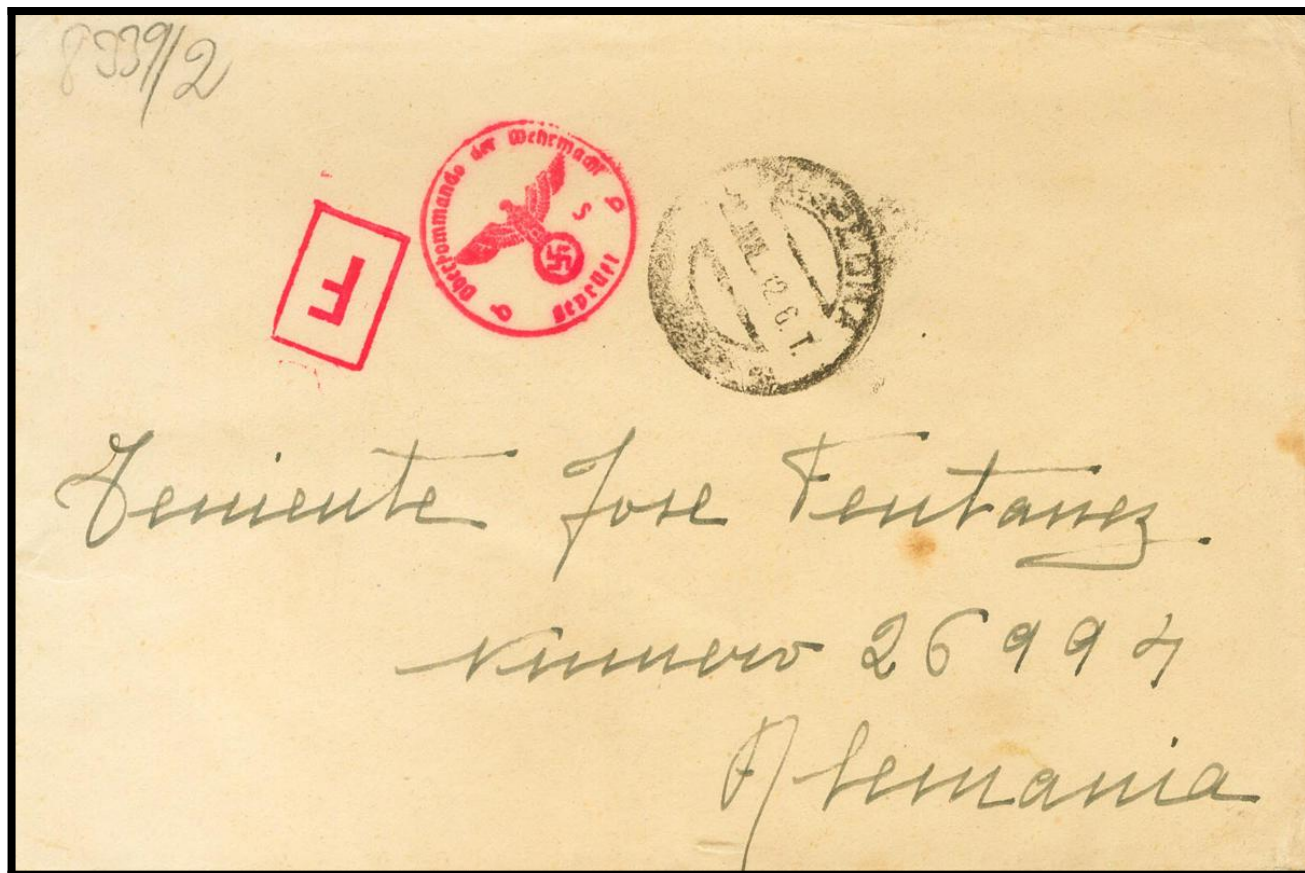 8339/2
Oberkommando der Wehrmacht
Geprüft
F
12 6. T.
Teniente Jose Fentanez
Numero 26994
Alemania